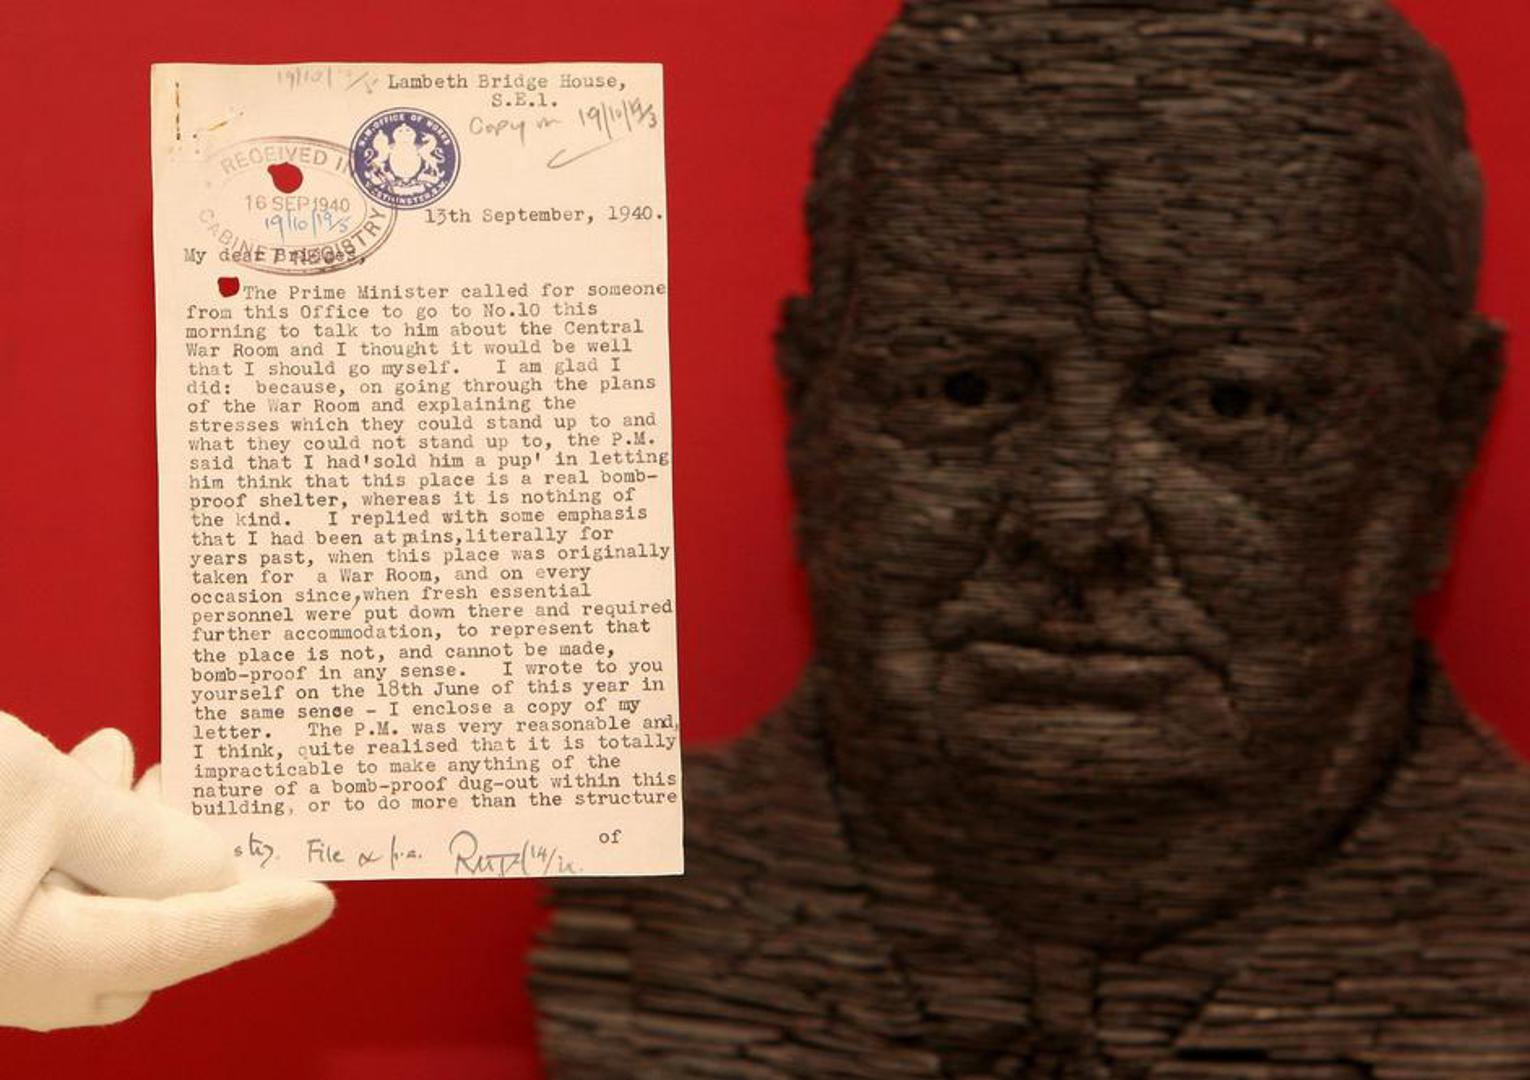 Lambeth Bridge House,
S.E.1.
Copy in 19/10/19/3
H.M. OFFICE OF WORKS
WESTMINSTER
RECEIVED IN
16 SEP 1940
19/10/19/5
CABINET REGISTRY
13th September, 1940.
My dear Bridges,
The Prime Minister called for someone
from this Office to go to No.10 this
morning to talk to him about the Central
War Room and I thought it would be well
that I should go myself. I am glad I
did: because, on going through the plans
of the War Room and explaining the
stresses which they could stand up to and
what they could not stand up to, the P.M.
said that I had 'sold him a pup' in letting
him think that this place is a real bomb-
proof shelter, whereas it is nothing of
the kind. I replied with some emphasis
that I had been at pains, literally for
years past, when this place was originally
taken for a War Room, and on every
occasion since, when fresh essential
personnel were put down there and required
further accommodation, to represent that
the place is not, and cannot be made,
bomb-proof in any sense. I wrote to you
yourself on the 18th June of this year in
the same sense - I enclose a copy of my
letter. The P.M. was very reasonable and,
I think, quite realised that it is totally
impracticable to make anything of the
nature of a bomb-proof dug-out within this
building, or to do more than the structure
of
File